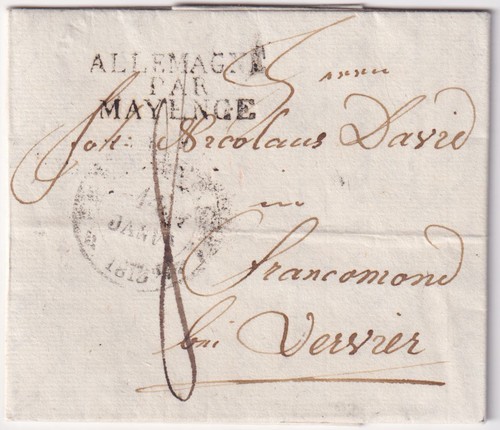 ALLEMAGNE
PAR
MAYENCE
Nicolaus David
in
Francomond
bei Vervier
JANV
1813